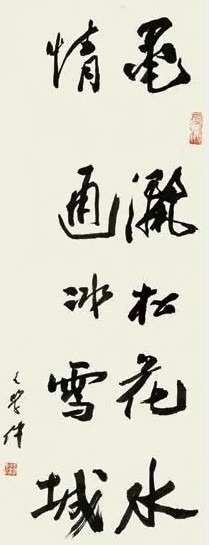 墨灑松花水
情通冰雪城